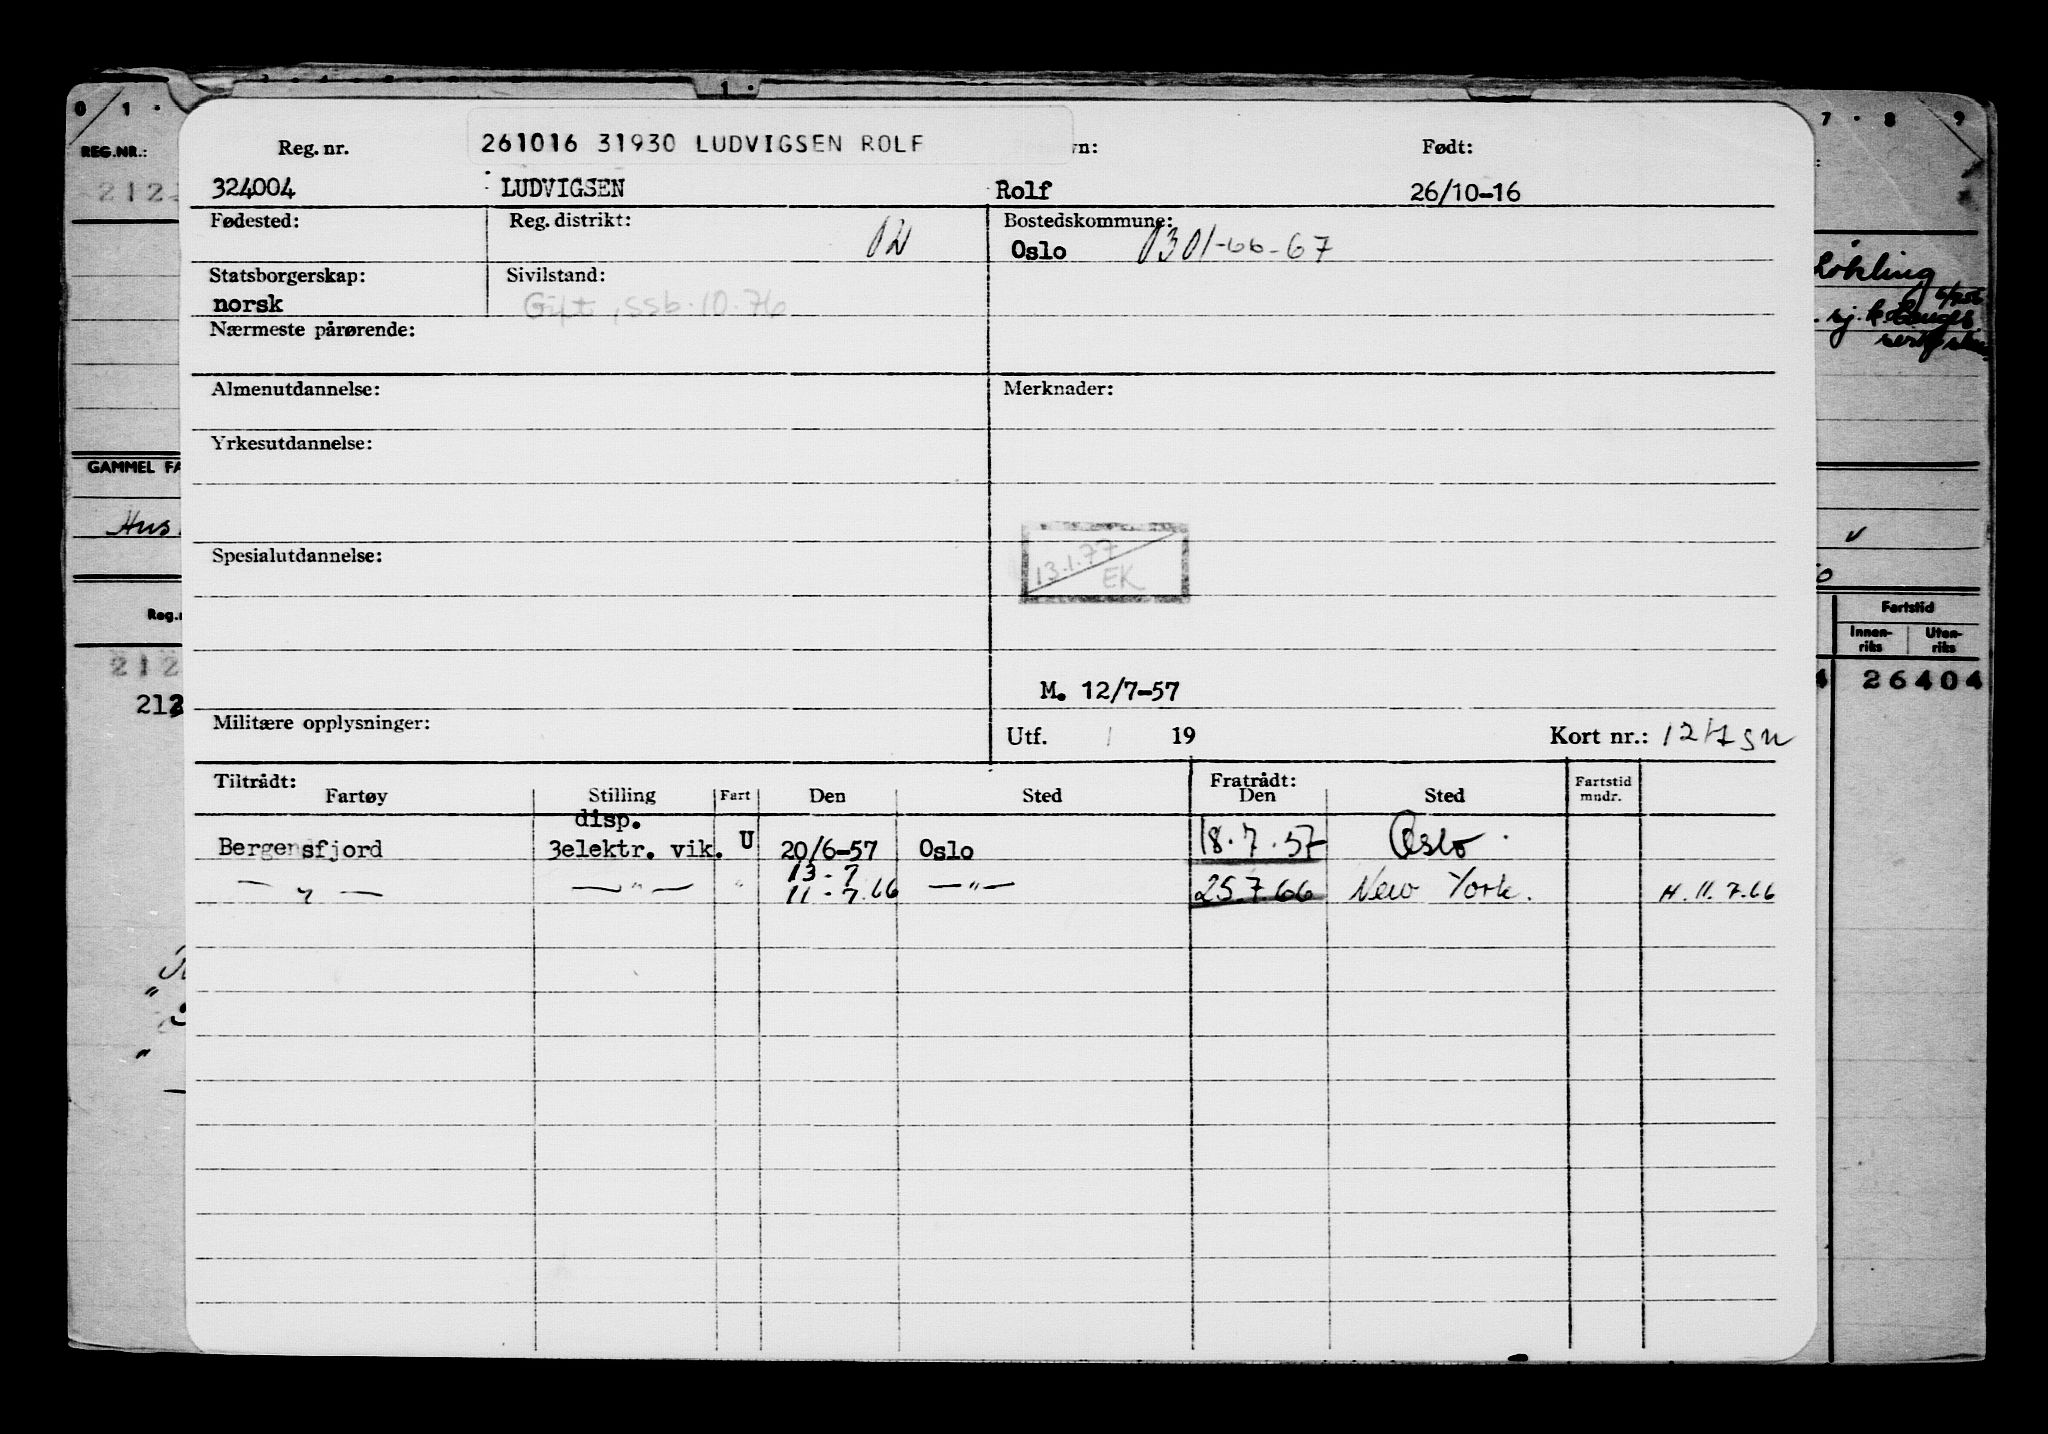 0 1 .
1 .
7 . 8 9
REG.NR.:
Reg. nr.
261016 31930 LUDVIGSEN ROLF
vn:
Født:
324004 LUDVIGSEN Rolf 26/10-16
Fødested:
Reg. distrikt:
Bostedskommune:
Oslo 0301-66-67
Statsborgerskap:
Sivilstand:
norsk
Gift, ssb.10.76
Nærmeste pårørende:
Almenutdannelse:
Merknader:
Yrkesutdannelse:
GAMMEL FA
Hus
Spesialutdannelse:
13.1.77
EK
Reg.
Fartstid
Innen-
riks
Uten-
riks
212
26404
M. 12/7-57
Militære opplysninger:
Utf. / 19
Kort nr.:
Tiltrådt:
Fratrådt:
Fartøy Stilling Fart Den Sted Den Sted
Fartstid
mndr.
disp.
Bergensfjord 3elektr. vik. U 20/6-57 Oslo 18.7.57 Oslo.
13-7
— " — — " — " 11-7.66 — " — 25.7 66 New York. H. 11.7.66